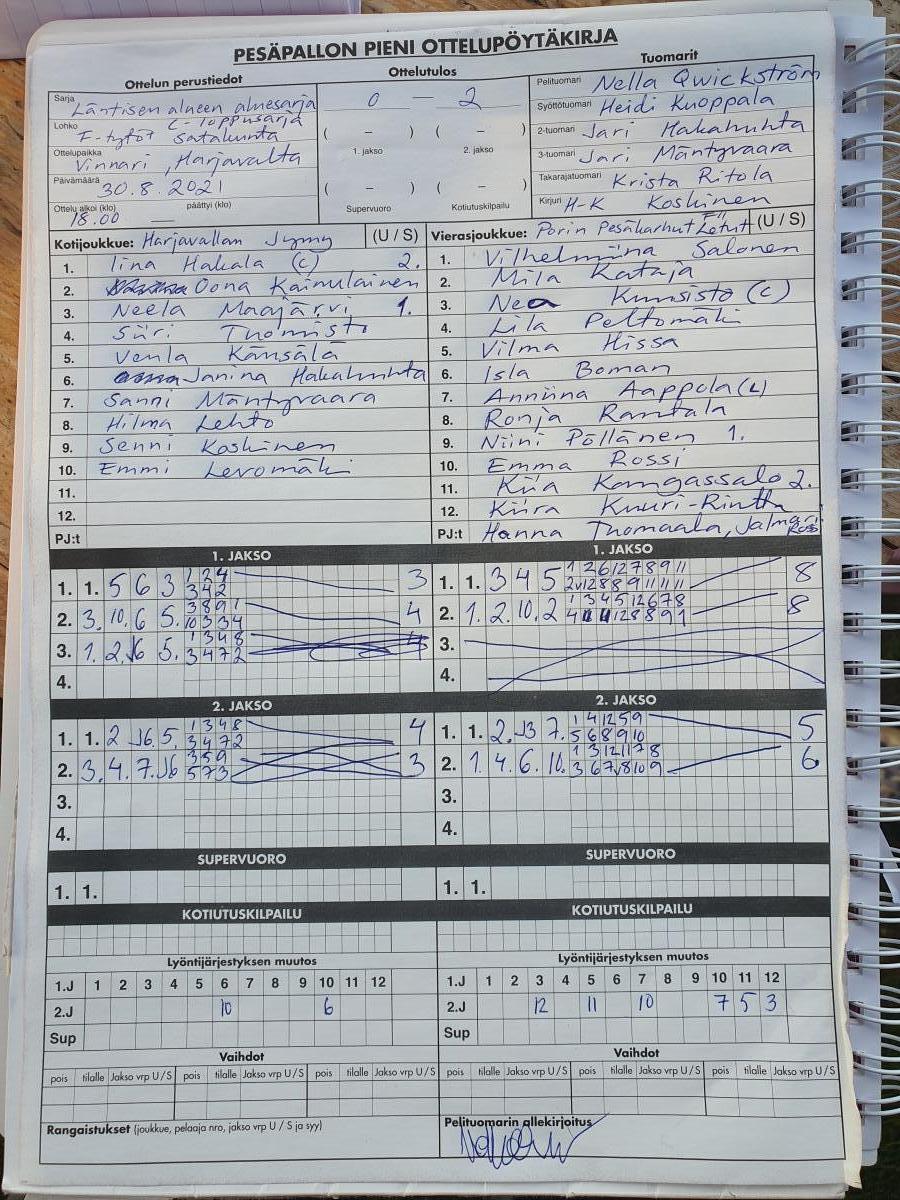 PESÄPALLON PIENI OTTELUPÖYTÄKIRJA
Ottelun perustiedot
Ottelutulos
Tuomarit
Sarja Läntisen alueen aluesarja
Lohko E-tytöt C-loppusarja Satakunta
Ottelupaikka Vinnari, Harjavalta
Päivämäärä 30.8.2021
Ottelu alkoi (klo) 18.00 päättyi (klo)
0 - 2
( - ) ( - )
1. jakso 2. jakso
( - ) ( - )
Supervuoro Kotiutuskilpailu
Pelituomari Nella Qwickström
Syöttötuomari Heidi Kuoppala
2-tuomari Jari Hakahuhta
3-tuomari Jari Mäntyvaara
Takarajatuomari Krista Ritola
Kirjuri H-K Koskinen
Kotijoukkue: Harjavallan Jymy (U / S)
1. Iina Hakala (C) 2.
2. Oona Kainulainen
3. Neela Maajärvi 1.
4. Siiri Thomisto
5. Venla Känsälä
6. Janina Hakahuhta
7. Sanni Mäntyvaara
8. Hilma Lehto
9. Senni Koskinen
10. Emmi Levomäki
11.
12.
PJ:t
Vierasjoukkue: Porin Pesäkarhut Letut (U / S)
1. Vilhelmiina Salonen
2. Mila Kataja
3. Nea Kunsisto (C)
4. Lila Peltomäki
5. Vilma Hissa
6. Isla Boman
7. Anniina Aappola (L)
8. Ronja Rantala
9. Niini Pöllänen 1.
10. Emma Rossi
11. Kiia Kangassalo 2.
12. Kiira Knuuri-Rintta
PJ:t Hanna Thomaala, Jalmari Rossi
1. JAKSO
1. 1. 5 6 3 1 2 4 3
3 4 2
2. 3. 10. 6 5. 3 8 9 1 4
10 3 3 4
3. 1. 2. J6 5. 1 3 4 8 4
3 4 7 2
4.
1. JAKSO
1. 1. 3 4 5 1 2 6 12 7 8 9 11 8
2. 1. 2. 10. 2 1 3 4 5 12 6 7 8 8
3.
4.
2. JAKSO
1. 1. 2 J6. 5. 1 3 4 8 4
3 4 7 2
2. 3. 4. 7. J6 3 5 9 3
5 7 3
3.
4.
2. JAKSO
1. 1. 2. J3 7. 1 4 12 5 9 5
5 6 8 9 10
2. 1. 4. 6. 10. 1 3 12 11 7 8 6
3 6 7 J8 10 9
3.
4.
SUPERVUORO
1. 1.
SUPERVUORO
1. 1.
KOTIUTUSKILPAILU
KOTIUTUSKILPAILU
Lyöntijärjestyksen muutos
1.J 1 2 3 4 5 6 7 8 9 10 11 12
2.J 10 6
Sup
Lyöntijärjestyksen muutos
1.J 1 2 3 4 5 6 7 8 9 10 11 12
2.J 12 11 10 7 5 3
Sup
Vaihdot
pois tilalle Jakso vrp U / S pois tilalle Jakso vrp U / S pois tilalle Jakso vrp U / S
Vaihdot
pois tilalle Jakso vrp U / S pois tilalle Jakso vrp U / S pois tilalle Jakso vrp U / S
Rangaistukset (joukkue, pelaaja nro, jakso vrp U / S ja syy)
Pelituomarin allekirjoitus